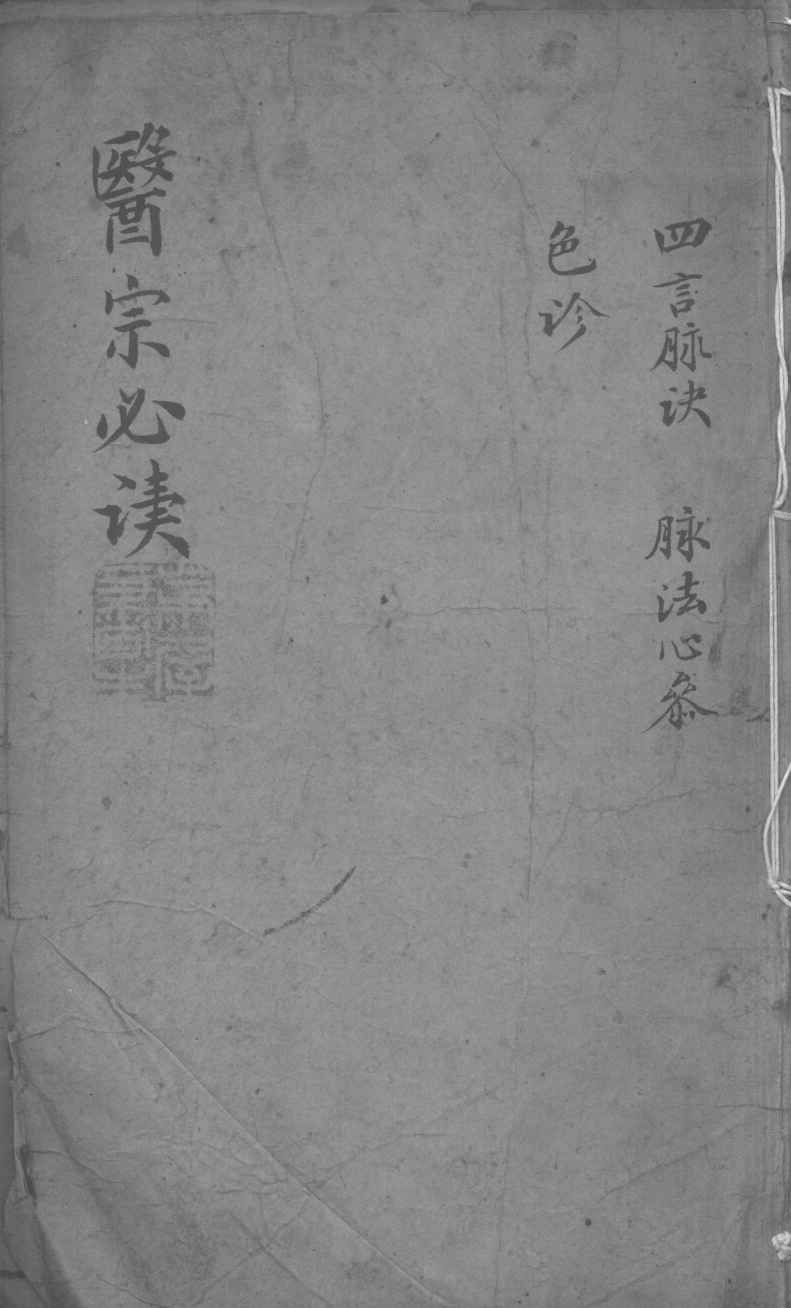 四言脉诀　脉法心参
色诊
醫宗必读